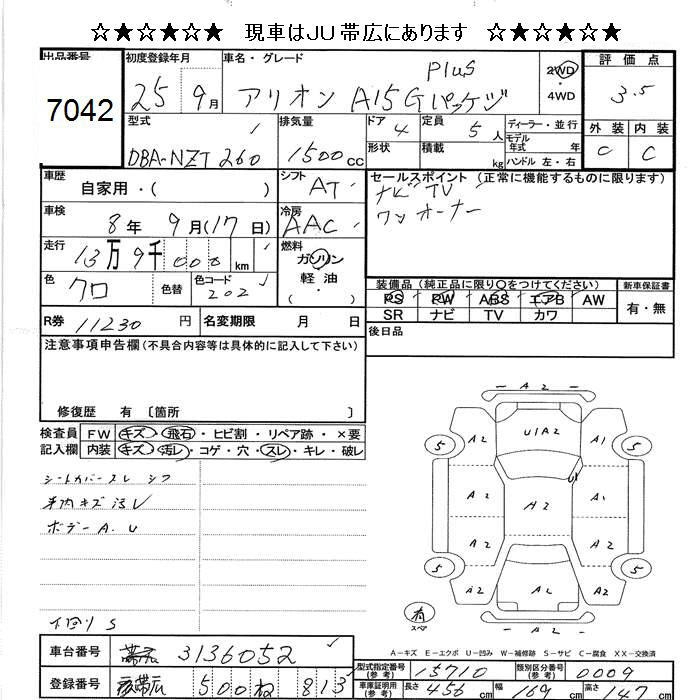 ☆★☆★☆★☆ 現車はJU帯広にあります ☆★☆★☆★☆
出品番号 7042
初度登録年月 25年 9月
車名・グレード アリオン A15 Gパッケジ Plus
2WD 4WD
評価点 3.5
外装 C 内装 C
型式 DBA-NZT 260
排気量 1500cc
ドア 4 形状
定員 5人 積載 kg
ディーラー・並行
モデル年式 年
ハンドル 左・右
車歴 自家用・( )
シフト AT
セールスポイント (正常に機能するものに限ります)
ナビ TV
ワンオーナー
車検 8年 9月(17日)
冷房 AAC
走行 13万9千000km
燃料 ガソリン 軽油 ・( )
色 クロ 色替
色コード 202
装備品 (純正品に限り○をつけてください)
PS PW ABS エアB AW
SR ナビ TV カワ
新車保証書 有・無
R券 11230円
名変期限 月 日
後日品
注意事項申告欄 (不具合内容等は具体的に記入して下さい)
修復歴 有 〔箇所 〕
検査員記入欄
FW キズ・飛石・ヒビ割・リペア跡・×要
内装 キズ・汚レ・コゲ・穴・スレ・キレ・破レ
シートカバー スレ シワ
車内キズ 汚レ
ボデーA.U
下回り S
A2
5 A2 U1A2 A1 5
U1
A2 A2 A1
A2 A2
5 A2 A2 A2 5
有 スペア
A2
A-キズ E-エクボ U-凹み W-補修跡 S-サビ C-腐食 XX-交換済
車台番号 3136052
登録番号 帯広 500 ね 813
型式指定番号(参考) 15710
類別区分番号(参考) 0009
車庫証明用(参考) 長さ 456cm 幅 169cm 高さ 147cm